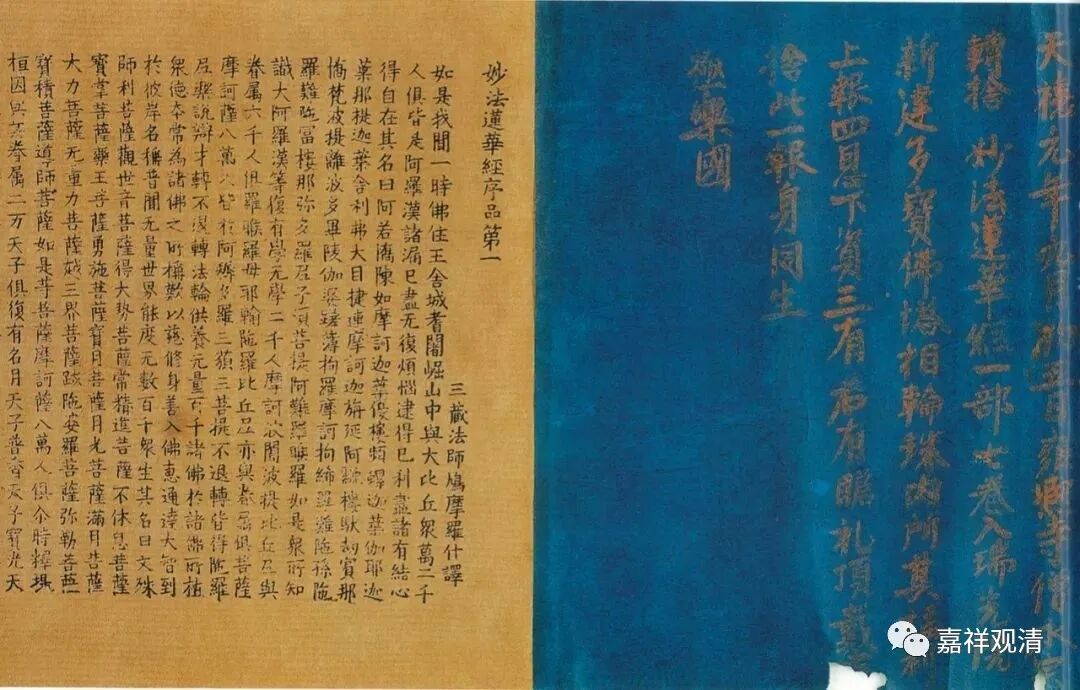 天禧元年九月初五日雍熈寺僧永
轉捨 妙法蓮華經一部七卷入瑞光院
新建多寶佛塔相輪珠內所冀福利
上報四恩下資三有若有瞻礼頂戴
捨此一報身同生
極樂國
妙法蓮華經序品第一
三藏法師鳩摩羅什譯
如是我聞一時佛住王舍城耆闍崛山中與大比丘衆萬二千
人俱皆是阿羅漢諸漏已盡无復煩惱逮得己利盡諸有結心
得自在其名曰阿若憍陳如摩訶迦葉優樓頻螺迦葉伽耶迦
葉那提迦葉舍利弗大目揵連摩訶迦旃延阿㝹樓馱劫賓那
憍梵波提離波多畢陵伽婆蹉薄拘羅摩訶拘絺羅難陁孫陁
羅難陁富樓那弥多羅尼子須菩提阿難羅睺羅如是衆所知
識大阿羅漢等復有學无學二千人摩訶波闍波提比丘尼與
眷属六千人俱羅睺羅母耶輸陁羅比丘尼亦與眷属俱菩薩
摩訶薩八萬人皆於阿耨多羅三藐三菩提不退轉皆得陁羅
尼樂說辯才轉不退轉法輪供養无量百千諸佛於諸佛所植
衆德本常為諸佛之所稱歎以慈修身善入佛惠通達大智到
於彼岸名稱普聞无量世界能度无數百千衆生其名曰文殊
師利菩薩觀世音菩薩得大勢菩薩常精進菩薩不休息菩薩
寶掌菩薩藥王菩薩勇施菩薩寶月菩薩月光菩薩滿月菩薩
大力菩薩无量力菩薩越三界菩薩跋陁婆羅菩薩弥勒菩薩
寶積菩薩導師菩薩如是等菩薩摩訶薩八萬人俱尒時釋提
桓因與其眷属二万天子俱復有名月天子普香天子寶光天
嘉祥观清